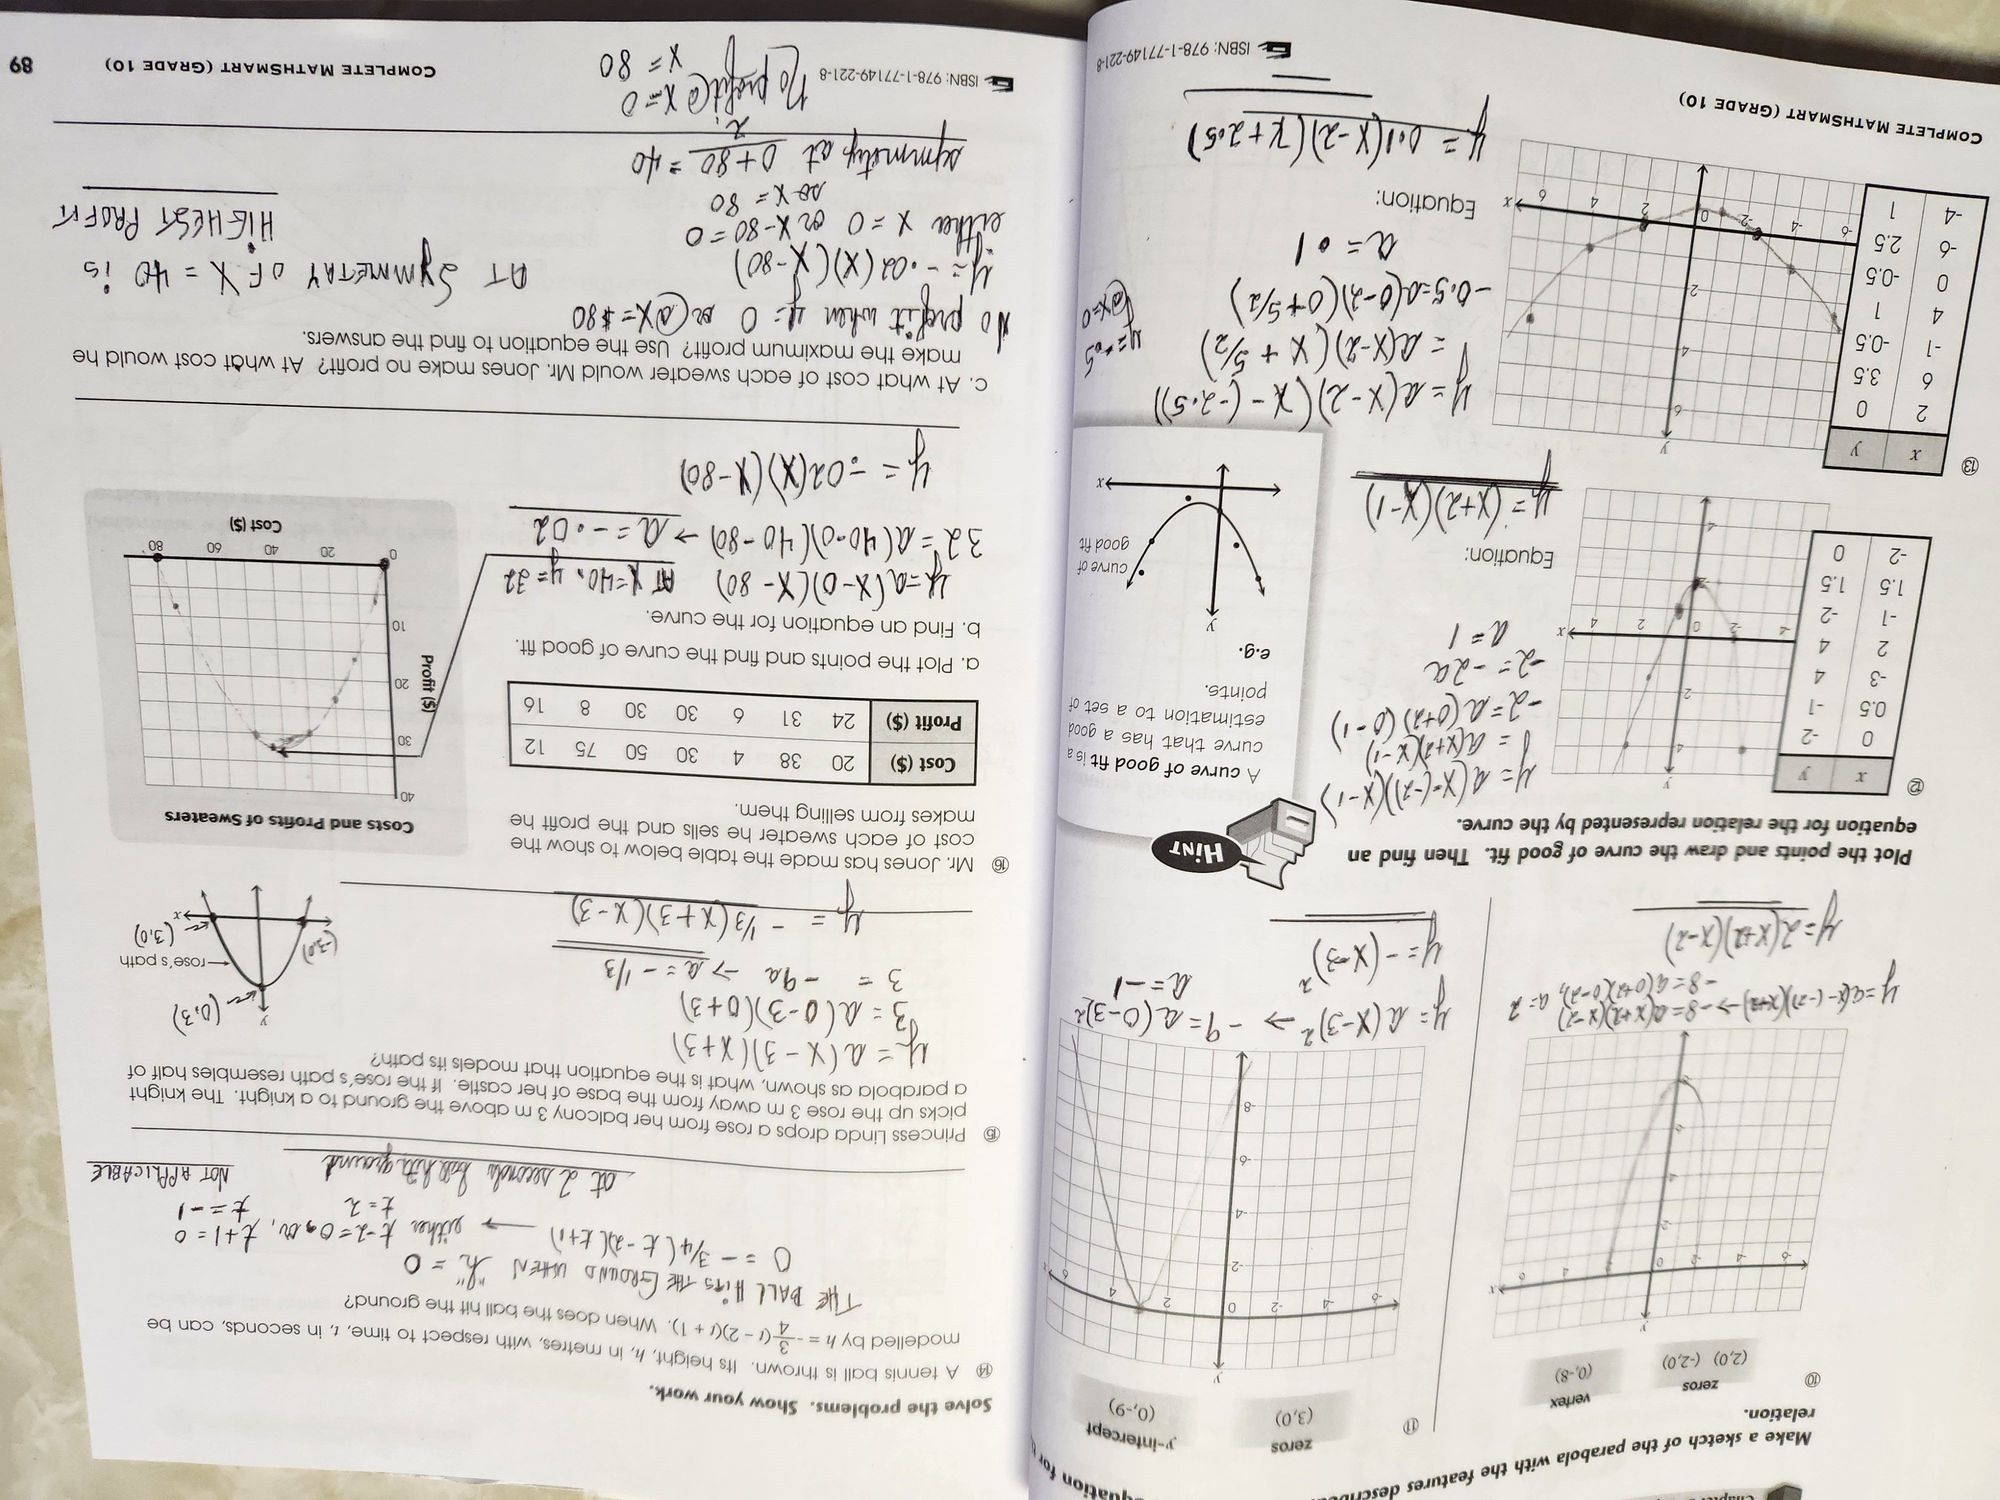 Make a sketch of the parabola with the features
relation.
⑩
zeros
(2,0) (-2,0)
vertex
(0,-8)
⑪
zeros
(3,0)
y-intercept
(0,-9)
y
x
-6 -4 -2 0 2 4 6
-2
-4
-6
-8
y = a(x-(-2))(x+2) → -8 = a(x+2)(x-2)
-8 = a(0+2)(0-2), a = 2
y = 2(x+2)(x-2)
y = a(x-3)² → -9 = a(0-3)²
a = -1
y = -(x-3)²
Plot the points and draw the curve of good fit. Then find an
equation for the relation represented by the curve.
⑫
x y
0 -2
0.5 -1
-3 4
2 4
-1 -2
1.5 1.5
-2 0
y = a(x-(-2))(x-1)
y = a(x+2)(x-1)
-2 = a(0+2)(0-1)
-2 = -2a
a = 1
Equation:
y = (x+2)(x-1)
HINT
A curve of good fit is a
curve that has a good
estimation to a set of
points.
e.g.
y
curve of
good fit
x
⑬
x y
2 0
6 3.5
-1 -0.5
4 1
0 -0.5
-6 2.5
-4 1
y = a(x-2)(x-(-2.5))
y = a(x-2)(x+5/2)
-0.5 = a(0-2)(0+5/2)
y = -.5
@x=0
a = 0.1
Equation:
y = 0.1(x-2)(x+2.5)
COMPLETE MATHSMART (GRADE 10)
ISBN: 978-1-77149-221-8
Solve the problems. Show your work.
⑭ A tennis ball is thrown. Its height, h, in metres, with respect to time, t, in seconds, can be
modelled by h = -3/4(t - 2)(t + 1). When does the ball hit the ground?
THE BALL HITS THE GROUND WHEN "h" = 0
0 = -3/4(t-2)(t+1) → either t-2=0, or, t+1=0
t=2 t=-1
at 2 seconds ball hits ground NOT APPLICABLE
⑮ Princess Linda drops a rose from her balcony 3 m above the ground to a knight. The knight
picks up the rose 3 m away from the base of her castle. If the rose's path resembles half of
a parabola as shown, what is the equation that models its path?
y = a(x-3)(x+3)
3 = a(0-3)(0+3)
3 = -9a → a = -1/3
y = -1/3(x+3)(x-3)
y
(0,3)
rose's path
(-3,0)
(3,0)
x
⑯ Mr. Jones has made the table below to show the
cost of each sweater he sells and the profit he
makes from selling them.
Cost ($) 20 38 4 30 50 75 12
Profit ($) 24 31 6 30 30 8 16
a. Plot the points and find the curve of good fit.
b. Find an equation for the curve.
y = a(x-0)(x-80) AT x=40, y=32
32 = a(40-0)(40-80) → a = -.02
y = -.02(x)(x-80)
Costs and Profits of Sweaters
Profit ($)
40
30
20
10
0 20 40 60 80
Cost ($)
c. At what cost of each sweater would Mr. Jones make no profit? At what cost would he
make the maximum profit? Use the equation to find the answers.
No profit when y = 0 or @x=$80
y = -.02(x)(x-80)
either x = 0 or x-80 = 0
so x = 80
symmetry at 0+80/2 = 40
No profit @ x = 0
x = 80
AT SYMMETRY OF X = 40 is
HIGHEST PROFIT
ISBN: 978-1-77149-221-8
COMPLETE MATHSMART (GRADE 10)
89